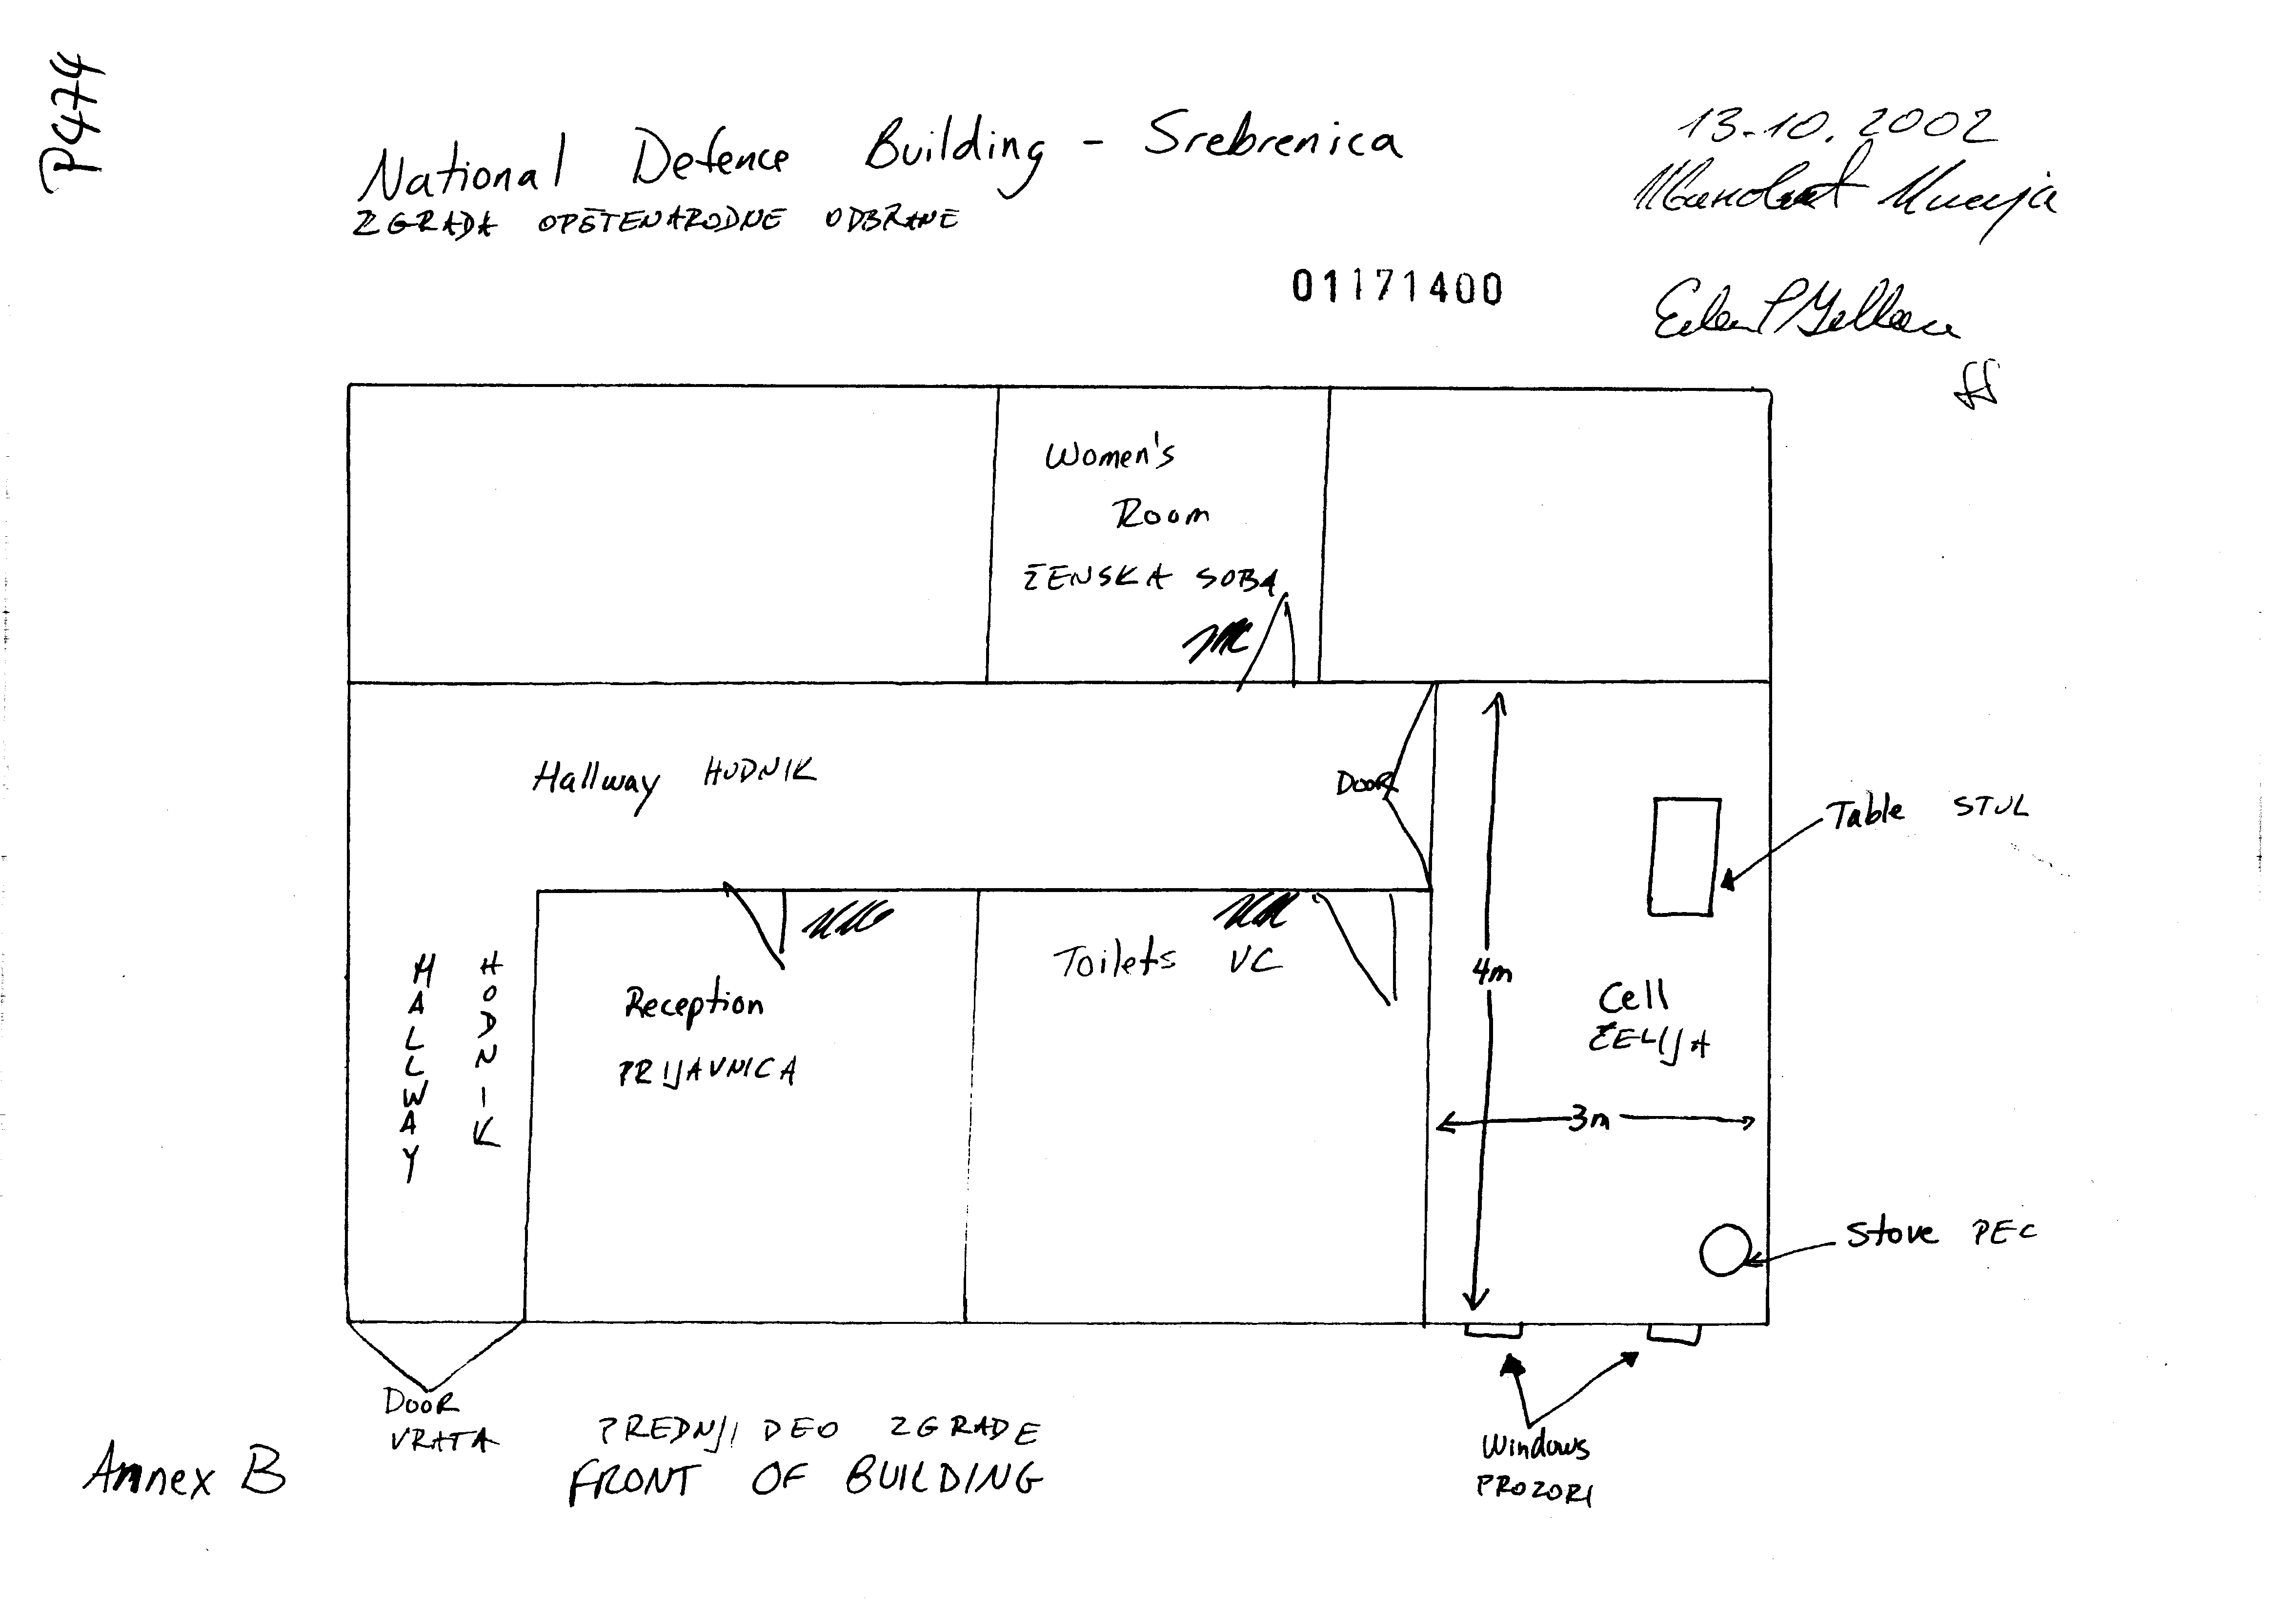 P474
National Defence Building - Srebrenica
ZGRADA OPŠTENARODNE ODBRANE
13.10.2002
01171400
Women's
Room
ŽENSKA SOBA
Hallway HODNIK
DOOR
Table STOL
HALLWAY
HODNIK
Reception
PRIJAVNICA
Toilets VC
4m
Cell
ĆELIJA
3m
Stove PEC
DOOR
VRATA
PREDNJI DEO ZGRADE
FRONT OF BUILDING
Windows
PROZORI
Annex B